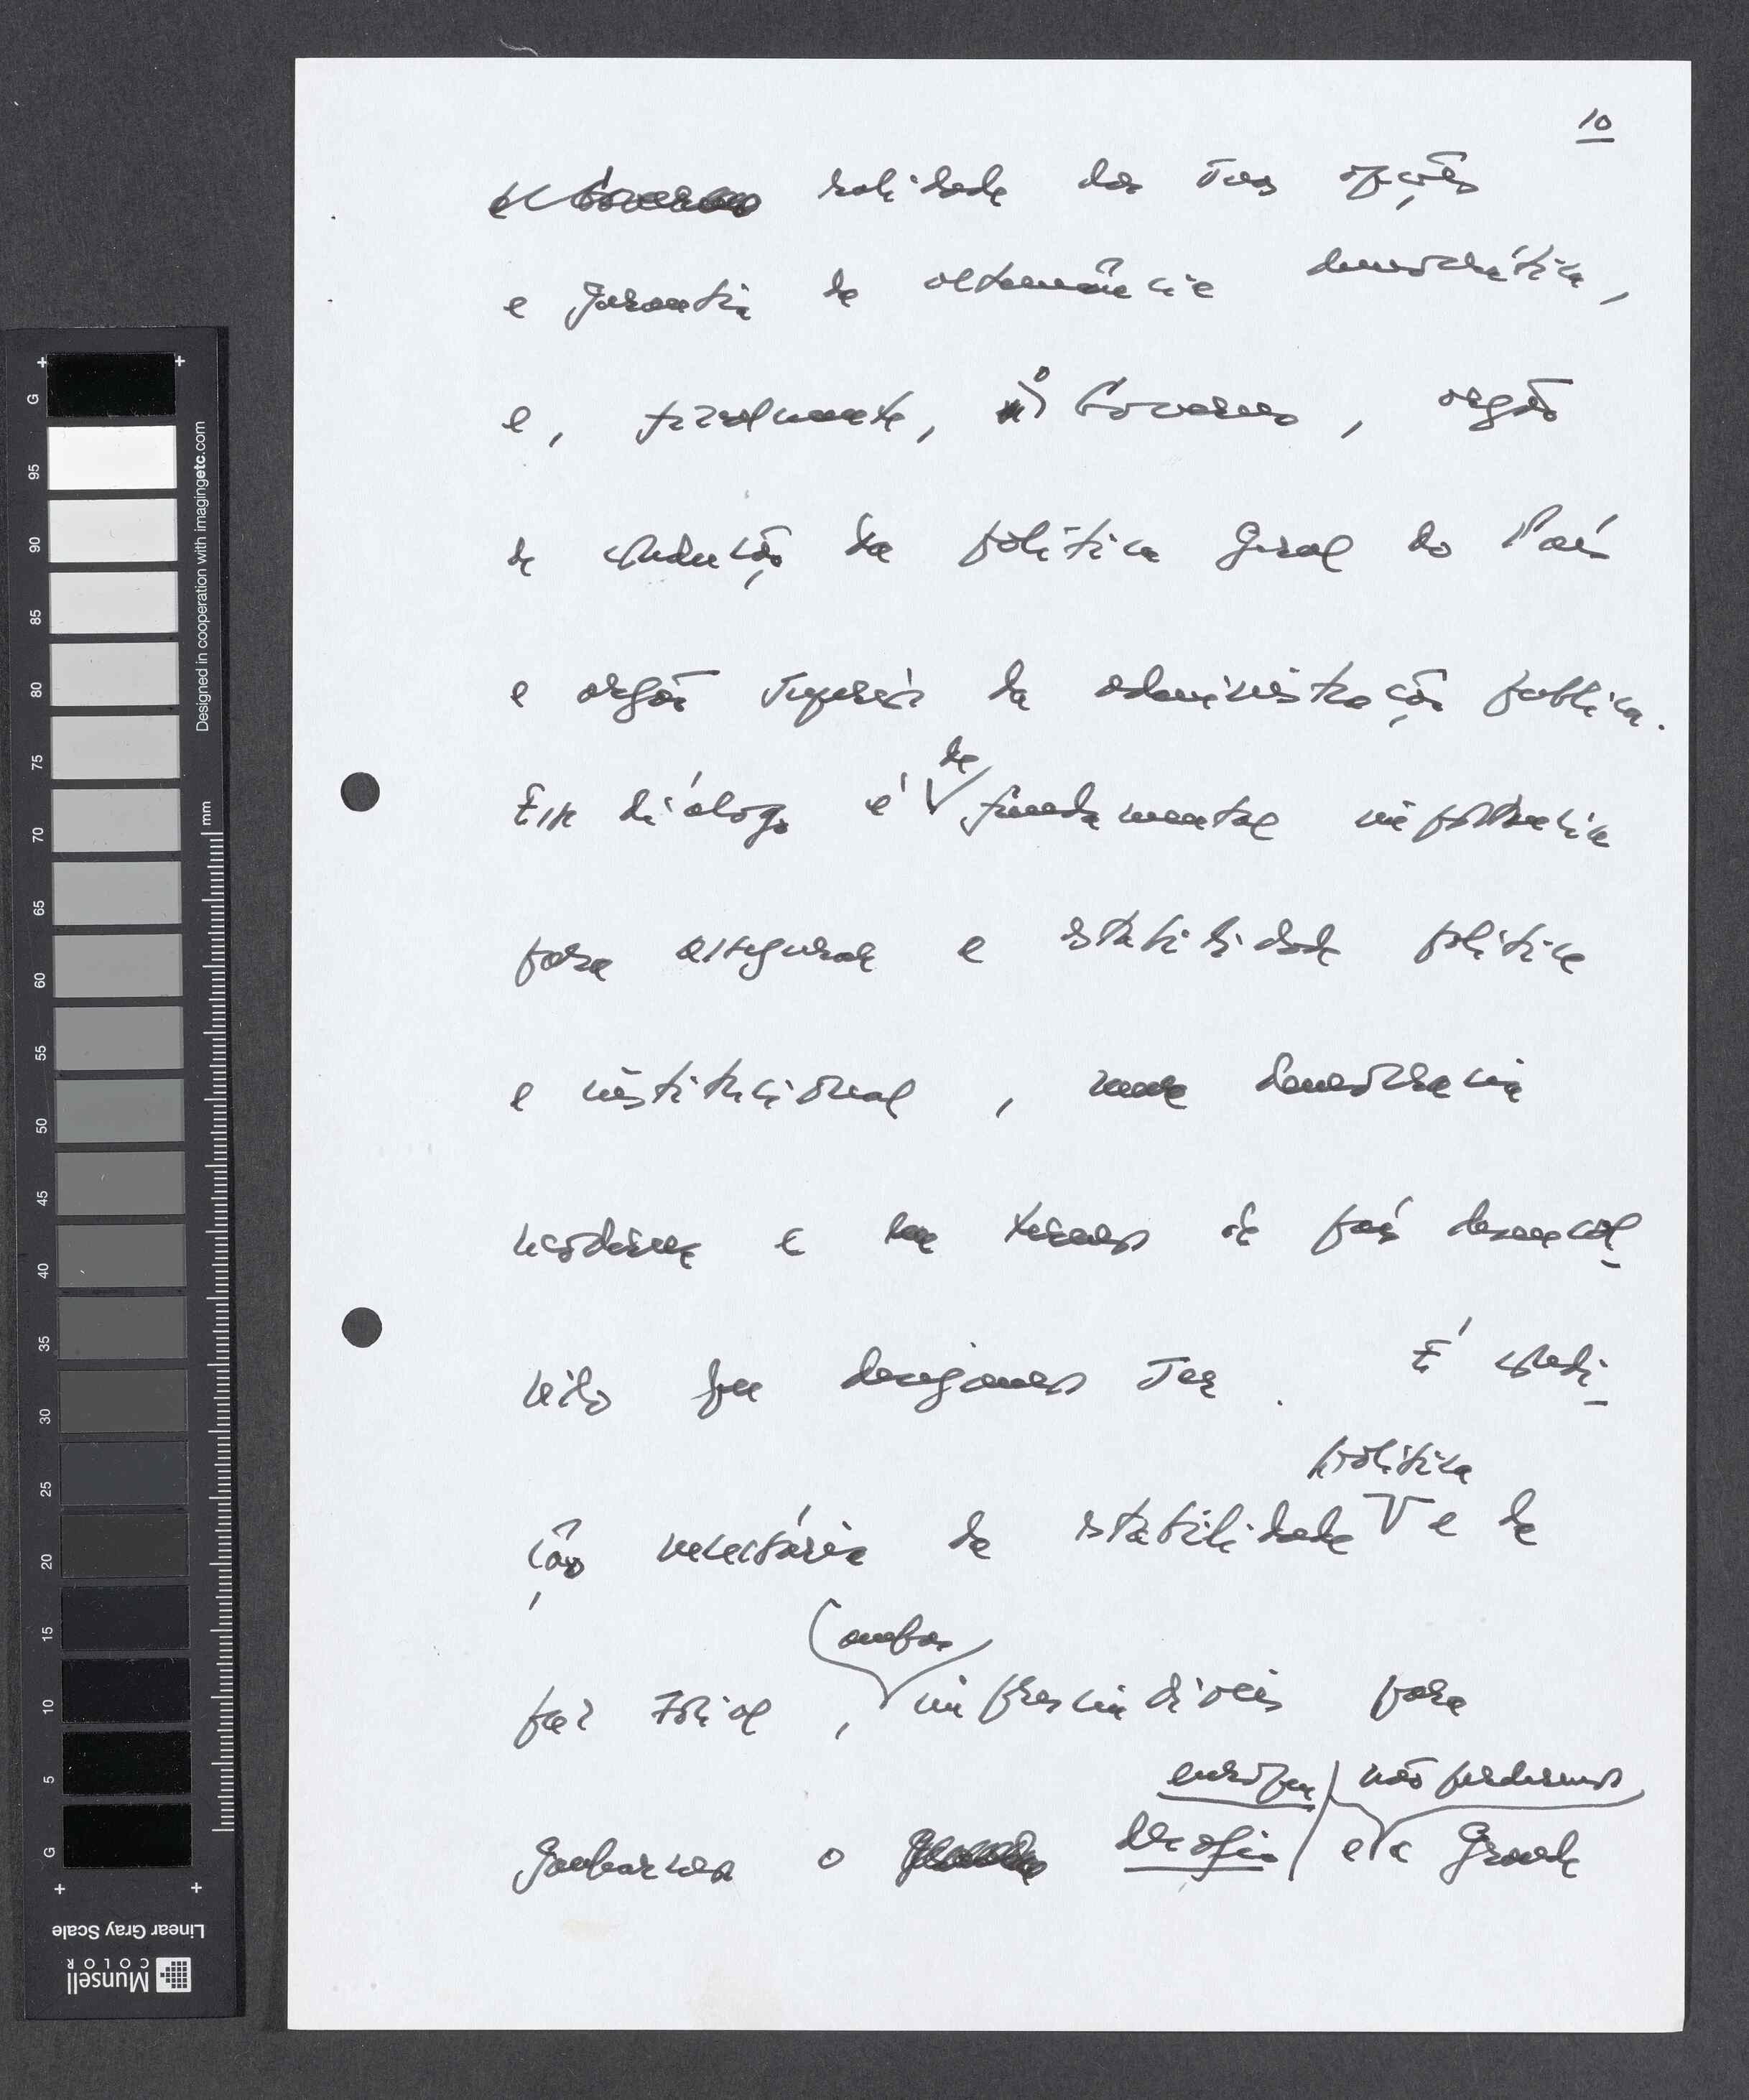 10
validade das suas opções
e garantia da alternância democrática,
e, finalmente, o Governo, orgão
de condução da política geral do País
e orgão superior da administração publica.
Esse diálogo é de fundamental importância
para assegurar a estabilidade politica
e institucional, numa democracia
moderna e que temos de país desenvol-
vido que desejamos ser. É condi-
ção necessária da estabilidade política e da
paz social, ambas imprescindiveis para
ganharmos o desafio europeu e não perdermos a grande
G 95 90 85 80 75 70 65 60 55 50 45 40 35 30 25 20 15 10 5 G
mm
Designed in cooperation with imagingetc.com
Linear Gray Scale
Munsell
COLOR